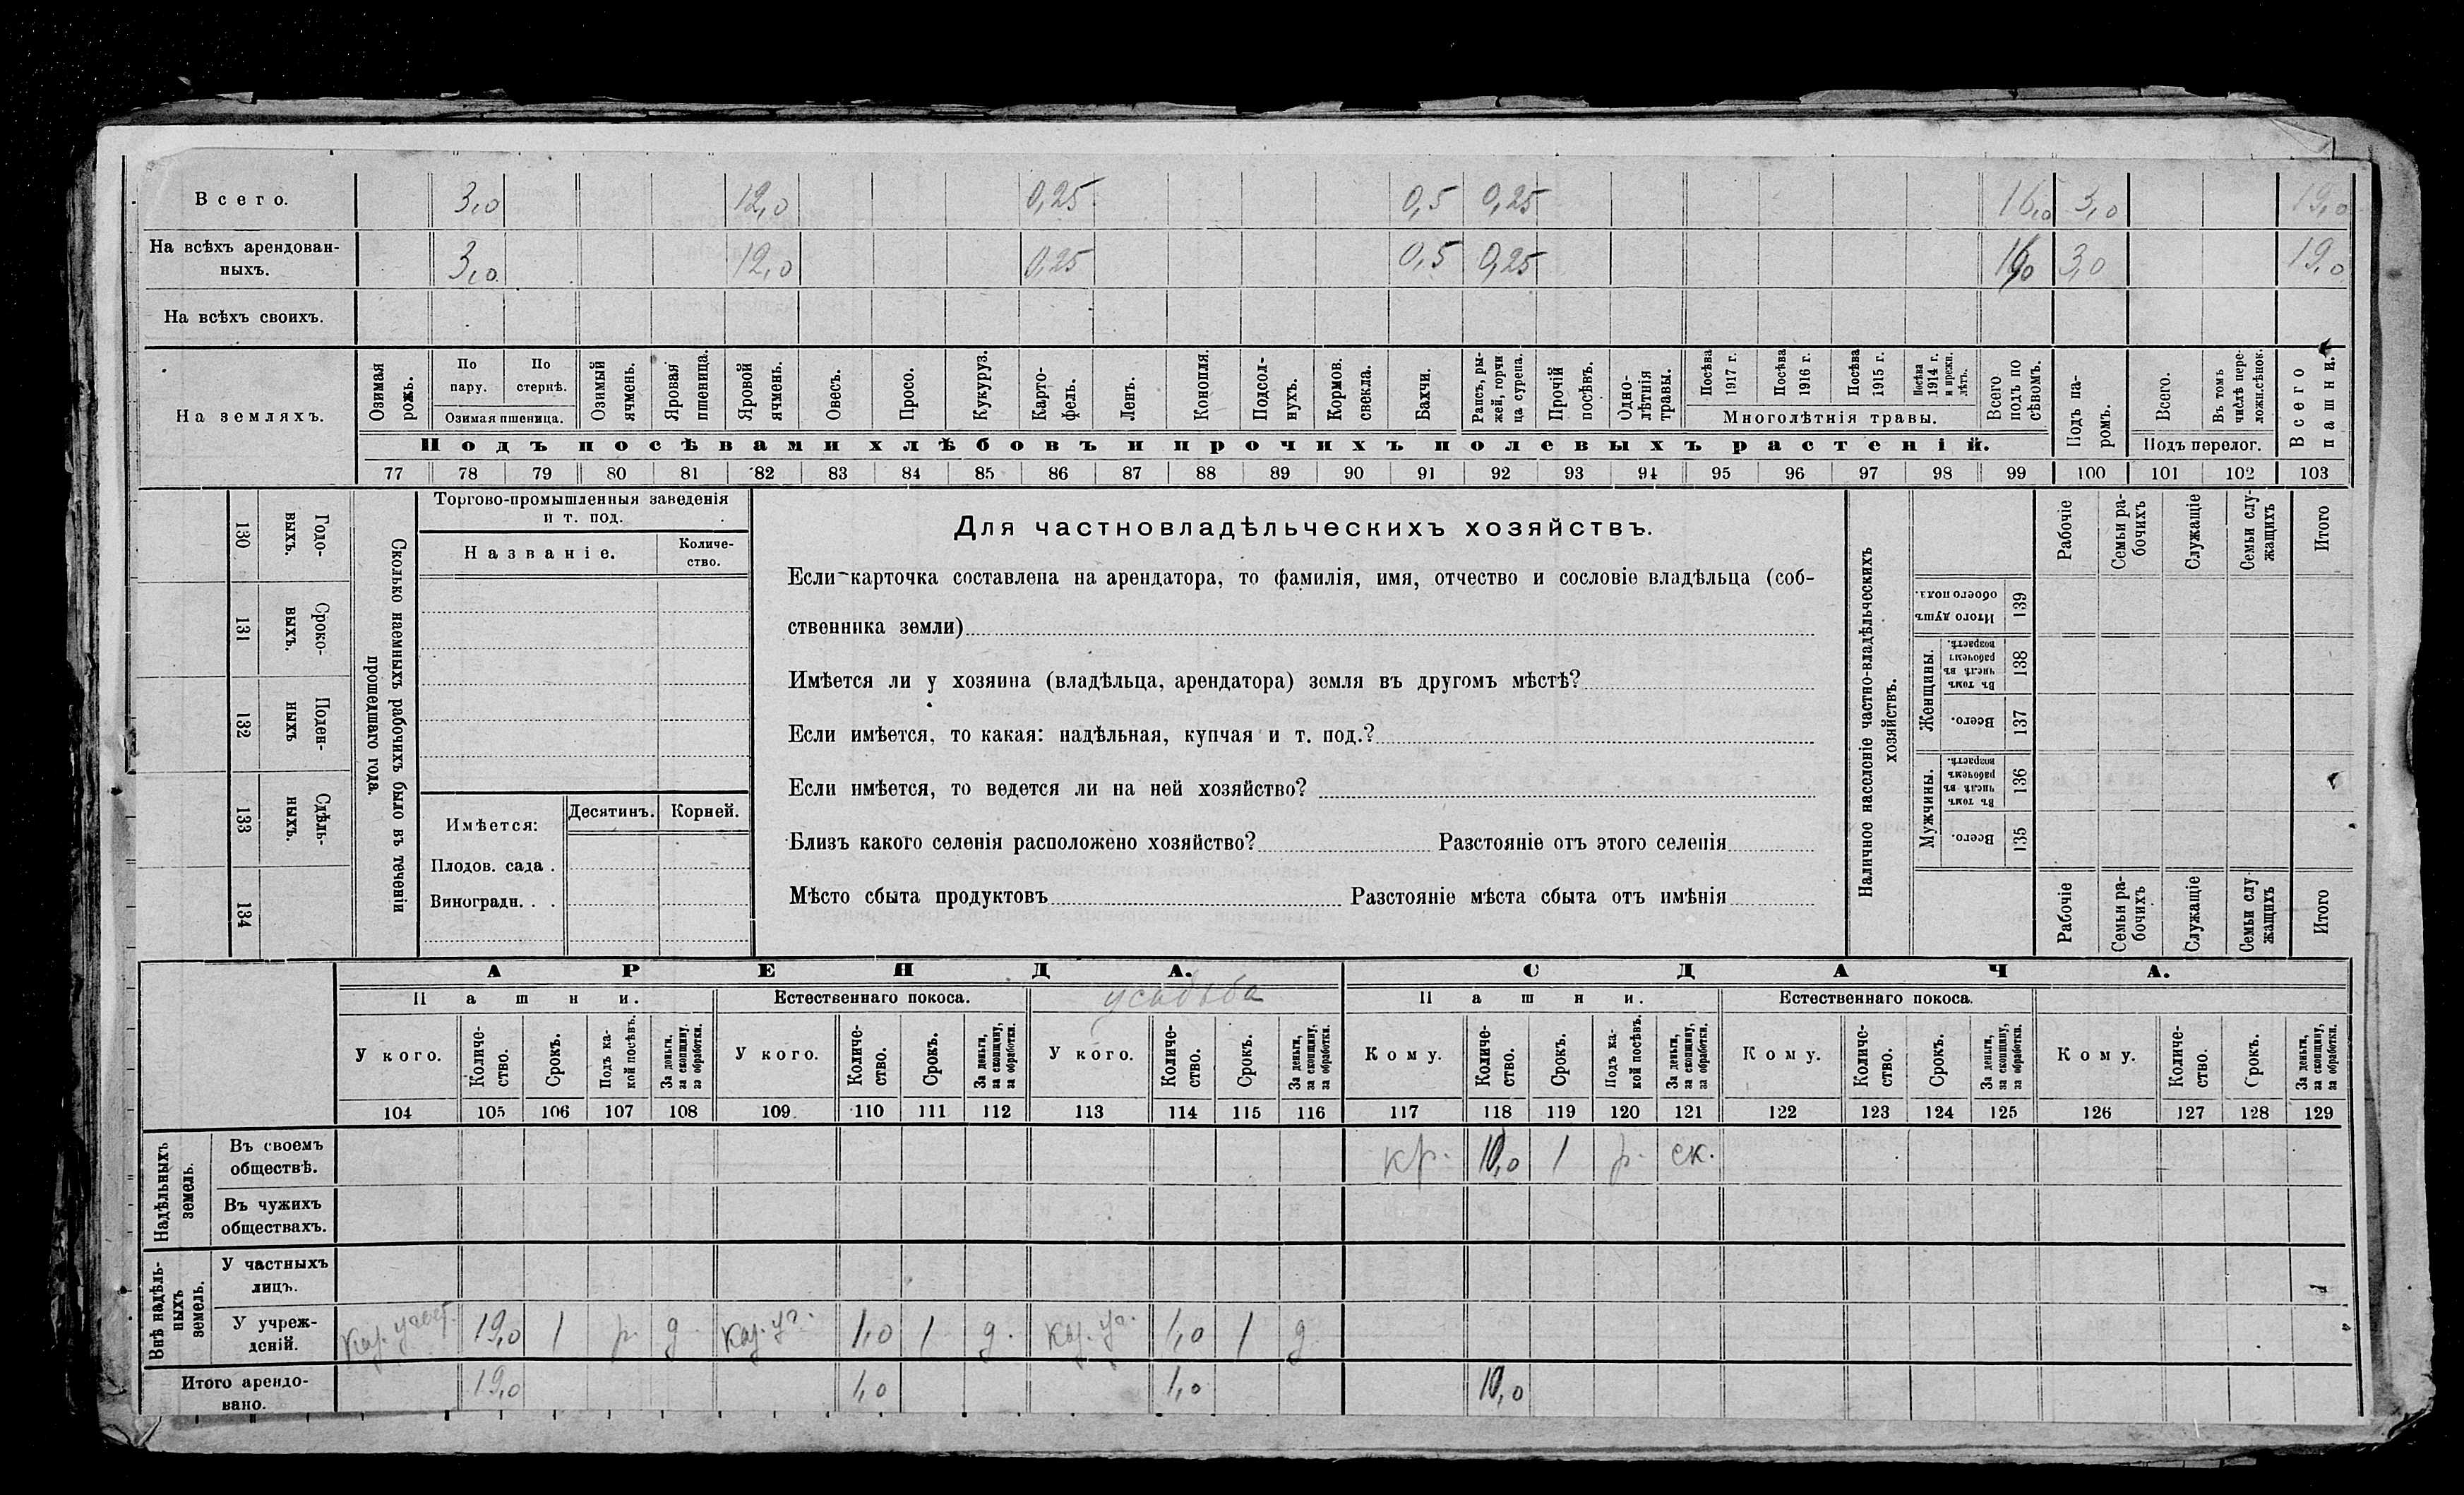 Всего. 3,0 12,0 0,25 0,5 0,25 16,0 3,0 19,0
На всѣхъ арендован-
ныхъ. 3,0 12,0 0,25 0,5 0,25 16,0 3,0 19,0
На всѣхъ своихъ.
На земляхъ.
Озимая рожь.
По пару.
По стернѣ.
Озимая пшеница.
Озимый ячмень.
Яровая пшеница.
Яровой ячмень.
Овесъ.
Просо.
Кукуруз.
Карто-
фель.
Ленъ.
Конопля.
Подсол-
нухъ.
Кормов.
свекла.
Бахчи.
Рапсъ, ры-
жей, горчи
ца сурепа.
Прочій
посѣвъ.
Одно-
лѣтнія
травы.
Посѣва
1917 г.
Посѣва
1916 г.
Посѣва
1915 г.
Посѣва
1914 г.
и прежн.
лѣтъ.
Многолѣтнія травы.
Всего
подъ по
сѣвомъ.
Подъ па-
ромъ.
Всего.
Въ томъ
числѣ пере-
ложн.сѣнок.
Подъ перелог.
Всего
пашни.
Подъ посѣвами хлѣбовъ и прочихъ полевыхъ растеній.
77 78 79 80 81 82 83 84 85 86 87 88 89 90 91 92 93 94 95 96 97 98 99 100 101 102 103
130 Годо-
выхъ.
131 Сроко-
выхъ.
132 Поден-
ныхъ
133 Сдѣль-
ныхъ.
134
Сколько наемныхъ рабочихъ было въ теченіи
прошедшаго года.
Торгово-промышленныя заведенія
и т. под.
Названіе.
Количе-
ство.
Имѣется: Десятинъ. Корней.
Плодов. сада .
Виноградн. . .
Для частновладѣльческихъ хозяйствъ.
Если карточка составлена на арендатора, то фамилія, имя, отчество и сословіе владѣльца (соб-
ственника земли)
Имѣется ли у хозяина (владѣльца, арендатора) земля въ другомъ мѣстѣ?
Если имѣется, то какая: надѣльная, купчая и т. под.?
Если имѣется, то ведется ли на ней хозяйство?
Близъ какого селенія расположено хозяйство? Разстояніе отъ этого селенія
Мѣсто сбыта продуктовъ Разстояніе мѣста сбыта отъ имѣнія
Наличное населеніе частно-владѣльческихъ
хозяйствъ.
Рабочіе
Семьи ра-
бочихъ
Служащіе
Семьи слу-
жащихъ
Итого
Итого душъ
обоего пола. 139
Женщины.
Въ томъ
числѣ въ
рабочемъ
возрастѣ. 138
Всего. 137
Мужчины.
Въ томъ
числѣ въ
рабочемъ
возрастѣ. 136
Всего. 135
Рабочіе
Семьи ра-
бочихъ
Служащіе
Семьи слу
жащихъ
Итого
АРЕНДА. СДАЧА.
Пашни. Естественнаго покоса. усадьба Пашни. Естественнаго покоса.
У кого.
Количе-
ство.
Срокъ.
Подъ ка-
кой посѣвъ.
За деньги,
за скопщину,
за обработки.
У кого.
Количе-
ство.
Срокъ.
За деньги,
за скопщину,
за обработки.
У кого.
Количе-
ство.
Срокъ.
За деньги,
за скопщину,
за обработки.
Кому.
Количе-
ство.
Срокъ.
Подъ ка-
кой посѣвъ.
За деньги,
за скопщину,
за обработки.
Кому.
Количе-
ство.
Срокъ.
За деньги,
за скопщину,
за обработки.
Кому.
Количе-
ство.
Срокъ.
За деньги,
за скопщину,
за обработки.
104 105 106 107 108 109 110 111 112 113 114 115 116 117 118 119 120 121 122 123 124 125 126 127 128 129
Надѣльныхъ
земель.
Въ своемъ
обществѣ. кр. 10,0 1 р. ск.
Въ чужихъ
обществахъ.
Внѣ надѣль-
ныхъ
земель.
У частныхъ
лицъ.
У учреж-
деній. Каз. участ. 19,0 1 р. д Каз. уч. 1,0 1 д. Каз. уч. 1,0 1 д
Итого арендо-
вано. 19,0 1,0 1,0 10,0